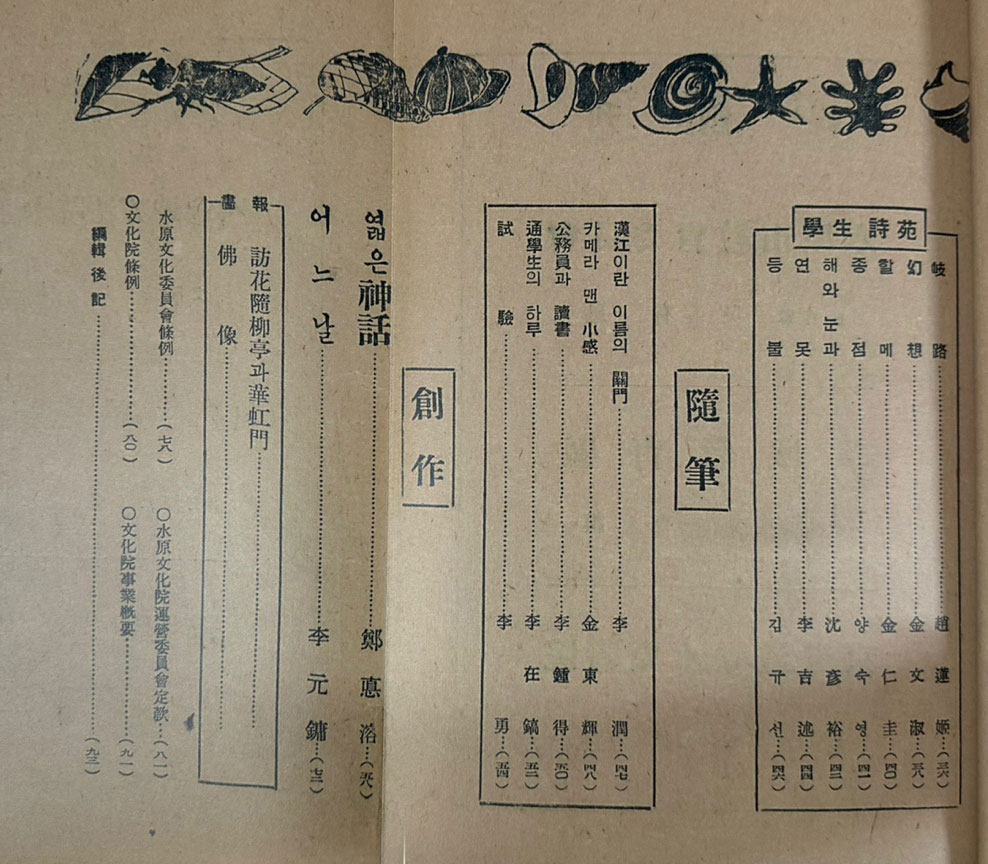 學生詩苑
岐路……趙蓮姬…(三六)
幻想……金文淑…(三八)
할메……金仁圭…(四〇)
종점……양숙영…(四一)
해와 눈과……沈彦裕…(四二)
연못……李吉述…(四四)
등불……김규선…(四六)
隨筆
漢江이란 이름의 關門……李潤…(四七)
카메라 맨 小感……金東輝…(四八)
公務員과 讀書……李鍾得…(五〇)
通學生의 하루……李在鎬…(五二)
試驗……李勇…(五四)
創作
엷은 神話……鄭悳溶…(五八)
어느날……李元鏞…(七三)
畵報
訪花隨柳亭과 華虹門……
佛像……
水原文化委員會條例……(七八)
〇水原文化院運營委員會定款…(八一)
〇文化院條例……(八〇)
〇文化院事業槪要……(九一)
編輯後記……(九三)